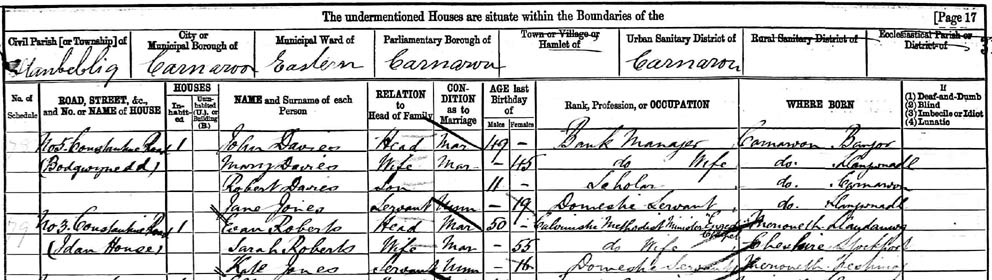 The undermentioned Houses are situate within the Boundaries of the [Page 17
Civil Parish [or Township] of City or Municipal Borough of Municipal Ward of Parliamentary Borough of Town or Village or Hamlet of Urban Sanitary District of Rural Sanitary District of Ecclesiastical Parish or District of
Llanbeblig Carnarvon Eastern Carnarvon Carnarvon
No. of Schedule ROAD, STREET, &c., and No. or NAME of HOUSE HOUSES In-habit-ed Unin-habited (U.), or Building (B.) NAME and Surname of each Person RELATION to Head of Family CON-DITION as to Marriage AGE last Birthday of Males Females Rank, Profession, or OCCUPATION WHERE BORN If (1) Deaf-and-Dumb (2) Blind (3) Imbecile or Idiot (4) Lunatic
No 5 Constantine Road 1 John Davies Head Mar 49 - Bank Manager Carnarvon Bangor
(Bodgwynedd) Mary Davies Wife Mar - 45 do Wife do.
Robert Davies Son 11 - Scholar do. Carnarvon
Jane Jones Servant Unm - 19 Domestic Servant do.
79 No 3. Constantine Road 1 Evan Roberts Head Mar 50 - Calvinistic Methodist Minister
(Idan House) Sarah Roberts Wife Mar - 55 do Wife Cheshire Stockport
Kate Jones Servant Unm - 16 Domestic Servant